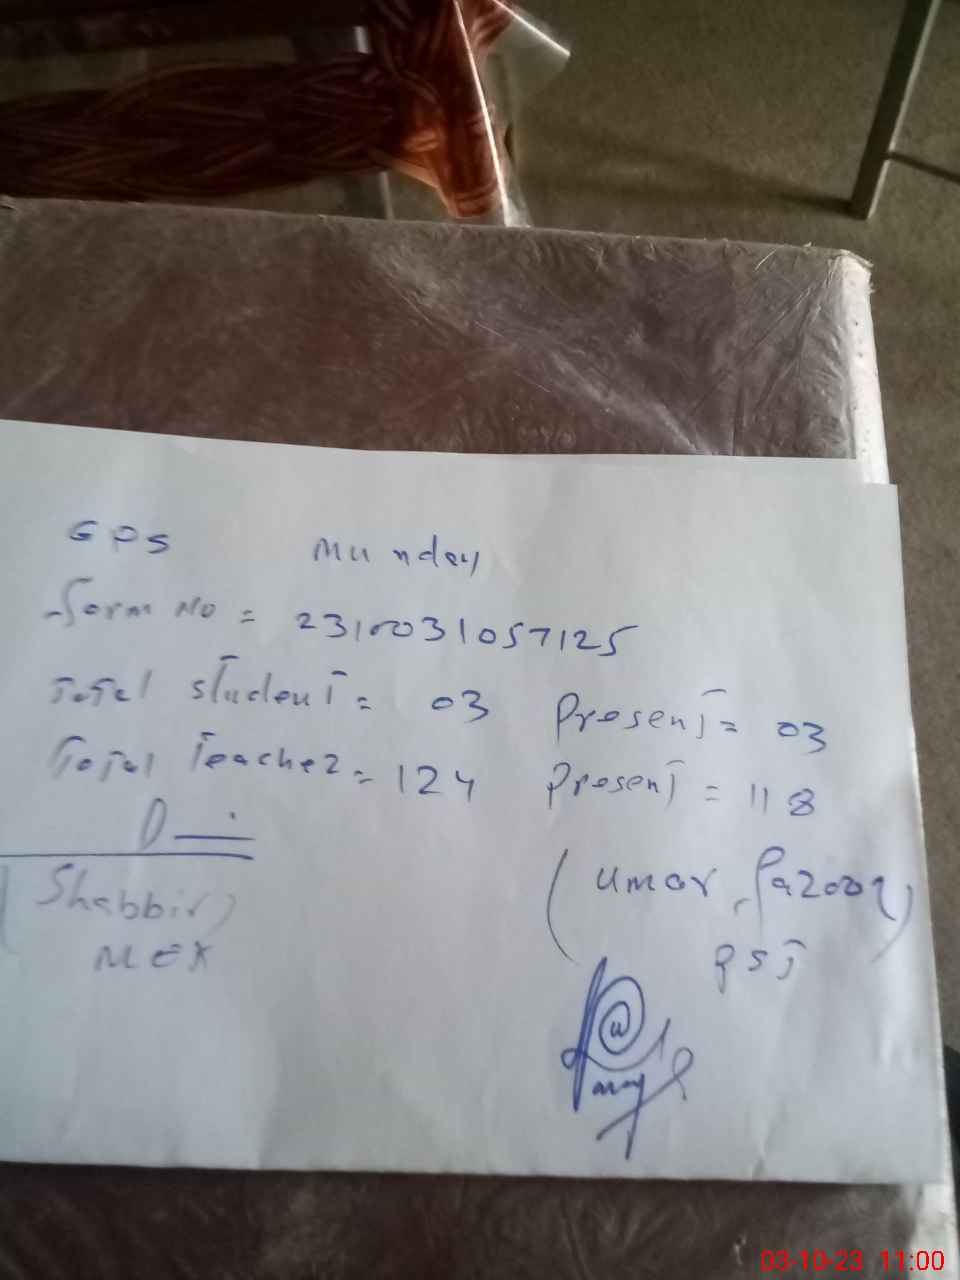 GPS Munday
Form No = 2310031057125
Total Student = 03 Present = 03
Total Teacher = 124 Present = 118
(Shabbir)
MEA
(Umar Farooq)
PST
03-10-23 11:00